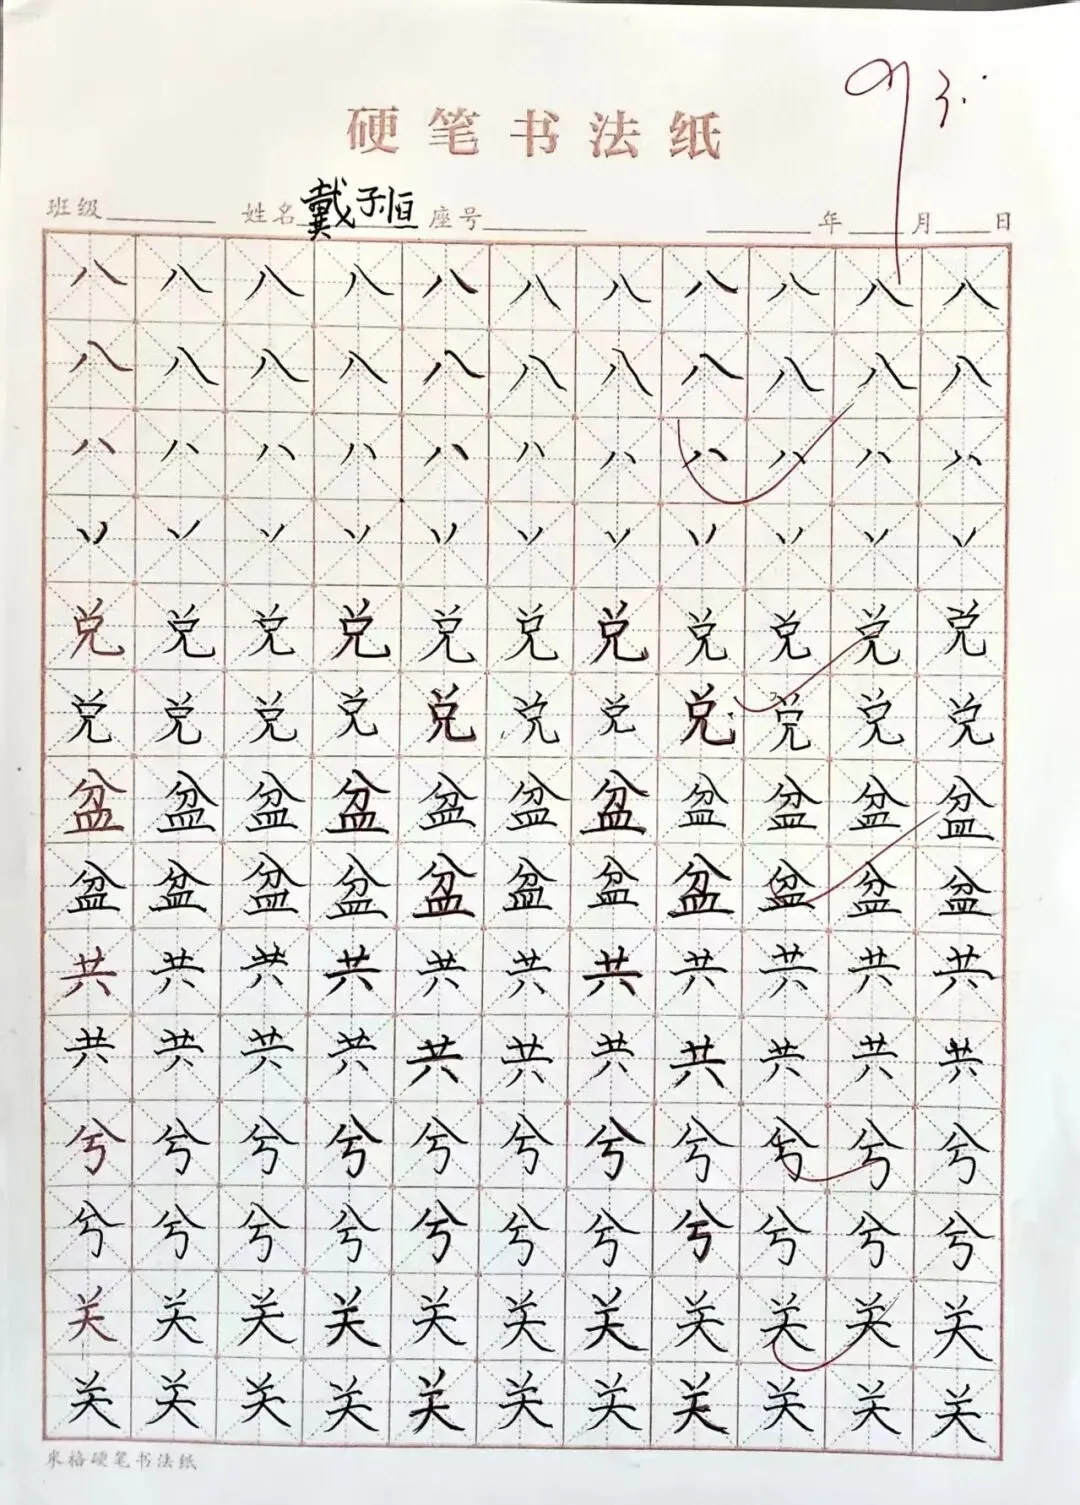 硬笔书法纸
班级 姓名 戴子恒 座号 年 月 日
八 八 八 八 八 八 八 八 八 八 八
八 八 八 八 八 八 八 八 八 八 八
八 八 八 八 八 八 八 八 八 八 八
丷 丷 丷 丷 丷 丷 丷 丷 丷 丷 丷
兑 兑 兑 兑 兑 兑 兑 兑 兑 兑 兑
兑 兑 兑 兑 兑 兑 兑 兑 兑 兑 兑
盆 盆 盆 盆 盆 盆 盆 盆 盆 盆 盆
盆 盆 盆 盆 盆 盆 盆 盆 盆 盆 盆
共 共 共 共 共 共 共 共 共 共 共
共 共 共 共 共 共 共 共 共 共 共
兮 兮 兮 兮 兮 兮 兮 兮 兮 兮 兮
兮 兮 兮 兮 兮 兮 兮 兮 兮 兮 兮
关 关 关 关 关 关 关 关 关 关 关
关 关 关 关 关 关 关 关 关 关 关
米格硬笔书法纸